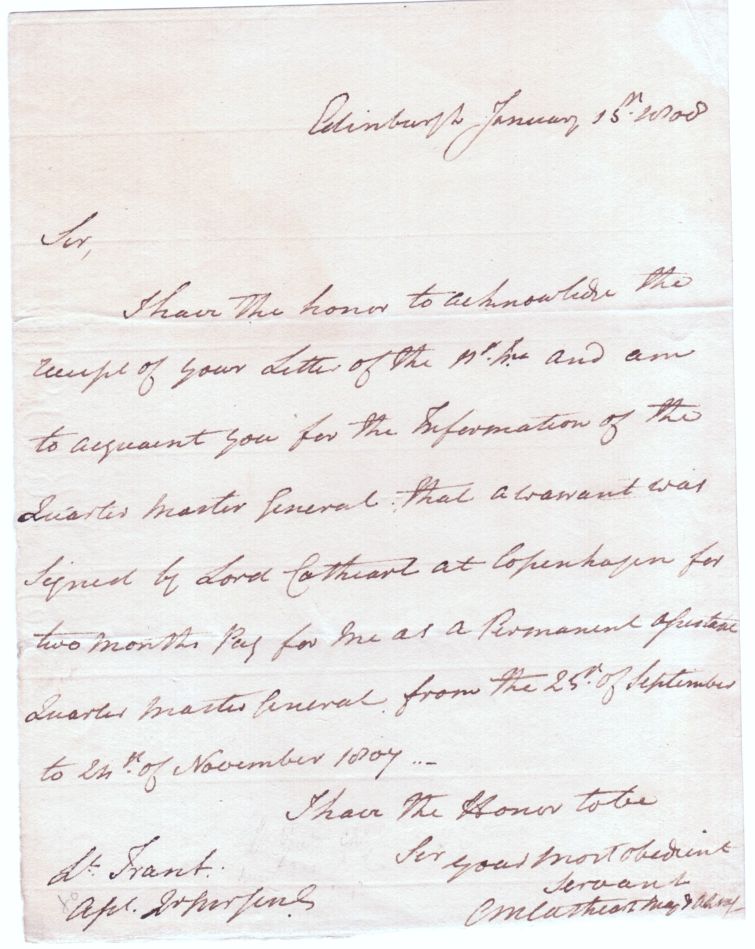 Edinburgh January 15th 1808
Sir,
I have the honor to acknowledge the
receipt of your Letter of the 11th Inst and am
to acquaint you for the Information of the
Quarter Master General that a warrant was
signed by Lord Cathcart at Copenhagen for
two months Pay for me as a Permanent Assistant
Quarter Master General from the 25th of September
to 24th of November 1807
I have the Honor to be
Sir your most obedient
Servant
Lt Trant
CM Cathcart